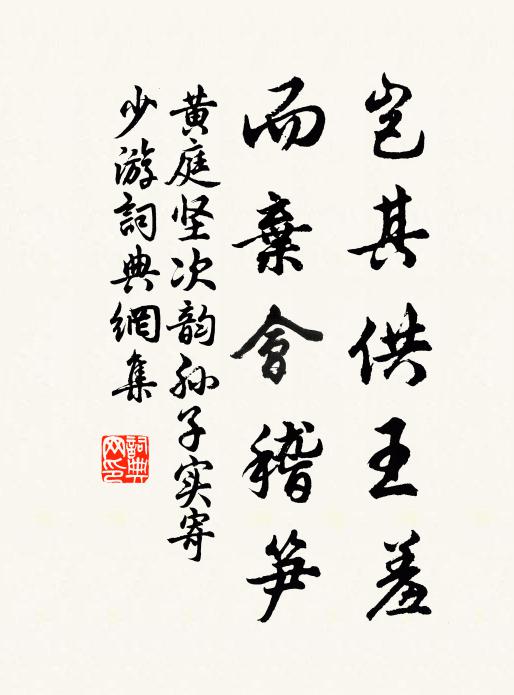 岂其供王羞
而棄會稽笋
黄庭坚次韵孙子实寄
少游詞典網集
詞典网印